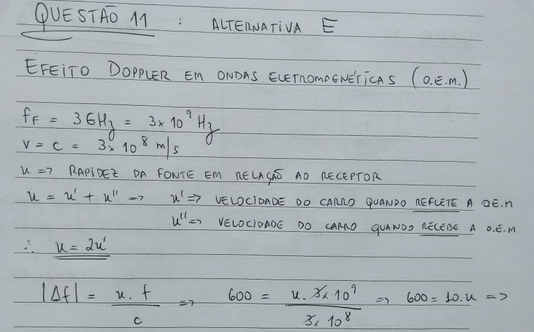 QUESTÃO 11 : ALTERNATIVA E
EFEITO DOPPLER EM ONDAS ELETROMAGNÉTICAS (O.E.M.)
f_F = 3GHz = 3x10^9 Hz
V = C = 3x10^8 m/s
u => RAPIDEZ DA FONTE EM RELAÇÃO AO RECEPTOR
u = u' + u'' -> u' => VELOCIDADE DO CARRO QUANDO REFLETE A O.E.M
u'' => VELOCIDADE DO CARRO QUANDO RECEBE A O.E.M
∴ u = 2u'
|Δf| = u.f / c => 600 = u.3x10^9 / 3x10^8 => 600 = 10.u =>